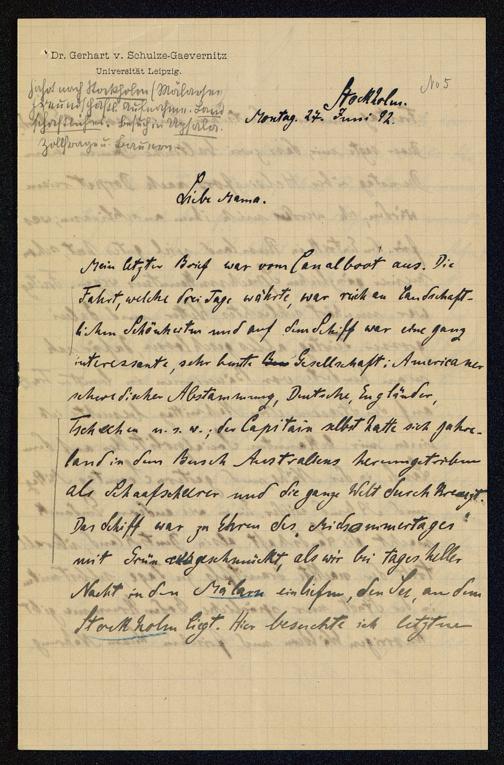 Dr. Gerhart v. Schulze-Gaevernitz
Universität Leipzig.
Fahrt nach Stockholm (Mälarsee
freundschaftl. Aufnahme. Land
schaftliches. Besuch in Upsala.
Zollfrage u. Bauern.
No 5
Stockholm.
Montag. 27. Juni 92.
Liebe Mama.
Mein letzter Brief war vom Canalboot aus. Die
Fahrt, welche drei Tage währte, war reich an landschaft-
lichen Schönheiten und auf dem Schiff war eine ganz
interessante, sehr bunte Gesellschaft: Americaner
schwedischer Abstammung, Deutsche, Engländer,
Tschechen u. s. w.; der Capitain selbst hatte sich jahre-
land in dem Busch Australiens herumgetrieben
als Schaafscheerer und die ganze Welt durchkreuzt.
Das Schiff war zu Ehren des "Midsommertages"
mit Grün geschmückt, als wir bei tagesheller
Nacht in den Mälarn einliefen, den See, an dem
Stockholm liegt. Hier besuchte ich letzten